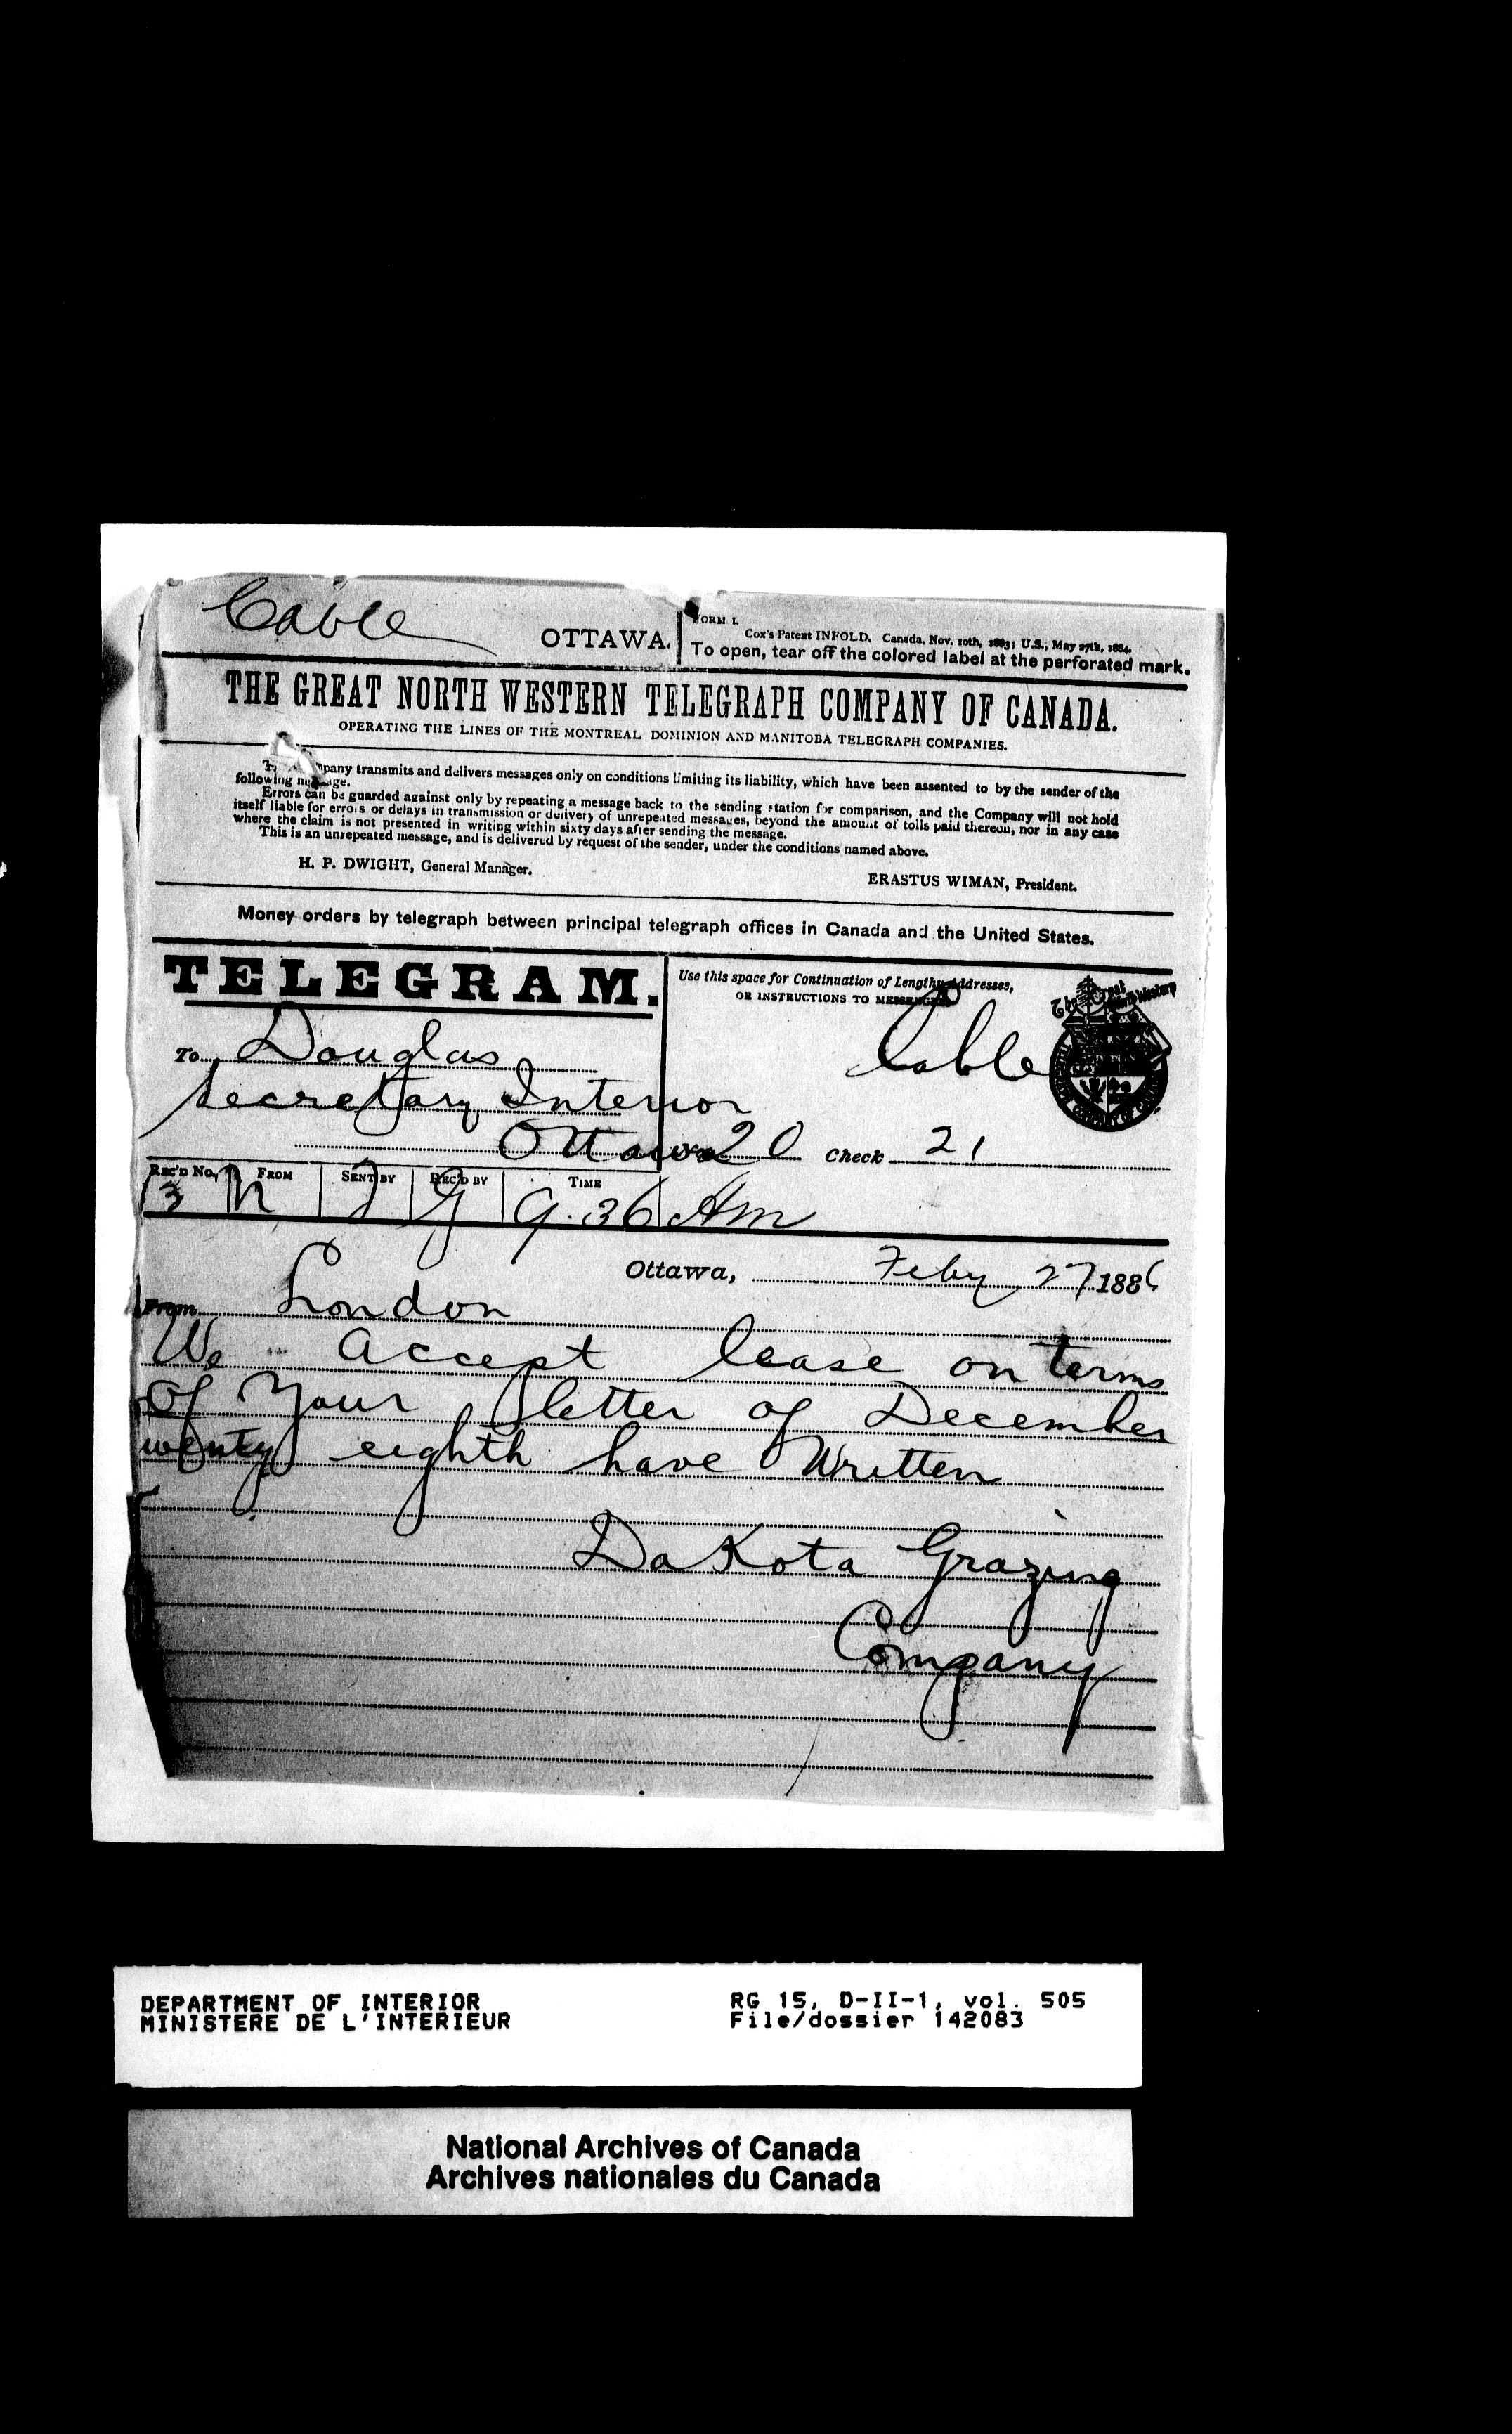 Cable
OTTAWA.
FORM 1.
Cox's Patent INFOLD. Canada, Nov. 10th, 1883; U.S., May 27th, 1884.
To open, tear off the colored label at the perforated mark.
THE GREAT NORTH WESTERN TELEGRAPH COMPANY OF CANADA.
OPERATING THE LINES OF THE MONTREAL DOMINION AND MANITOBA TELEGRAPH COMPANIES.
transmits and delivers messages only on conditions limiting its liability, which have been assented to by the sender of the
following
Errors can be guarded against only by repeating a message back to the sending station for comparison, and the Company will not hold
itself liable for errors or delays in transmission or delivery of unrepeated messages, beyond the amount of tolls paid thereon, nor in any case
where the claim is not presented in writing within sixty days after sending the message.
This is an unrepeated message, and is delivered by request of the sender, under the conditions named above.
H. P. DWIGHT, General Manager.
ERASTUS WIMAN, President.
Money orders by telegraph between principal telegraph offices in Canada and the United States.
TELEGRAM.
Use this space for Continuation of Lengthy Addresses,
OR INSTRUCTIONS TO MESSENGER
Cable
To Douglas
Secretary Interior
Ottawa 20 Check 21
REC'D No. FROM SENT BY REC'D BY TIME
3 N J G 9.36 Am
Ottawa, Feby 27 1886
From London
We accept lease on terms
of your letter of December
twenty eighth have written
Dakota Grazing
Company
DEPARTMENT OF INTERIOR
MINISTERE DE L'INTERIEUR
RG 15, D-II-1, vol. 505
File/dossier 142083
National Archives of Canada
Archives nationales du Canada